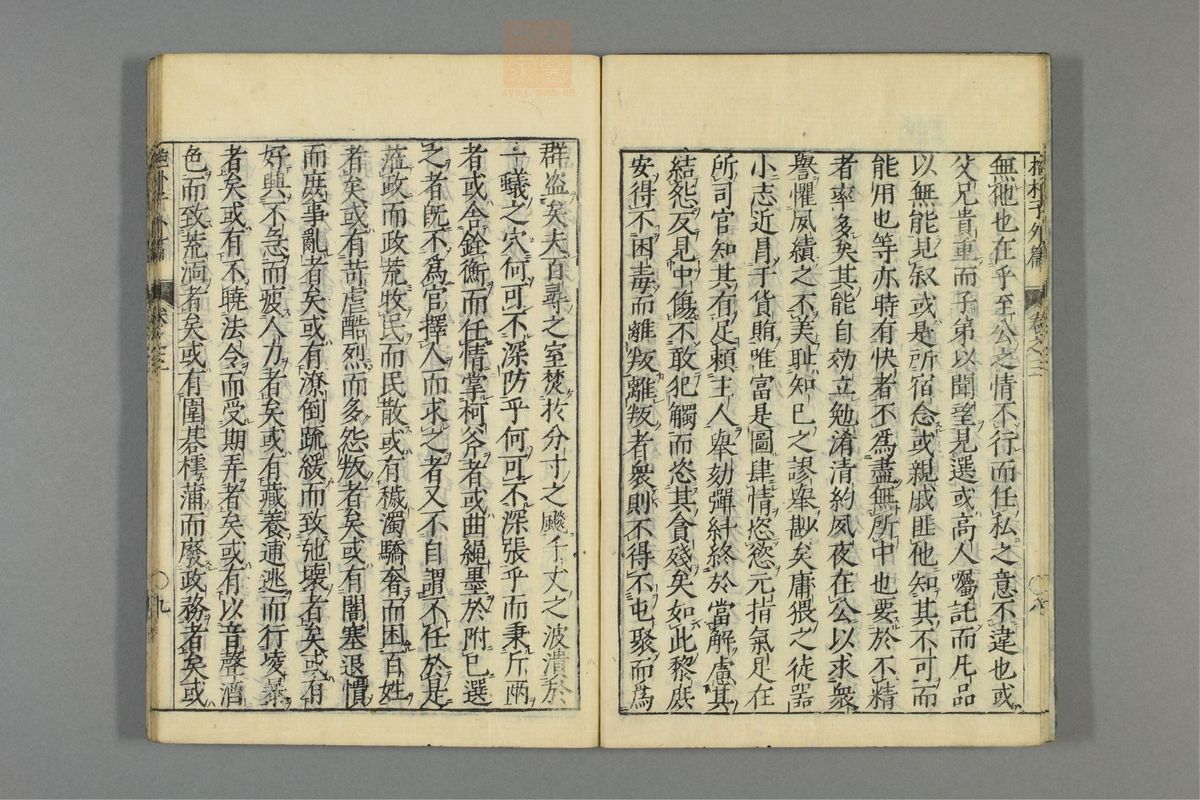 抱朴子外篇 卷之三 八
無他也在乎至公之情不行而任私之意不違也或
父兄貴重而子弟以聞望見選或高人屬託而凡品
以無能見叙或是所宿念或親戚匪他知其不可而
能用也等亦時有快者不為盡無所中也要於不精
者率多矣其能自効立勉清清約夙夜在公以求衆
譽懼風績之不美恥知已之謬舉尠矣庸猥之徒器
小志近冐于貨賄唯富是圖肆情恣慾元指氣足在
所司官知其有足頼主人舉劾彈糾終於當解慮其
結怨反見中傷不敢犯觸而恣其貪殘矣如此黎庶
安得不困毒而離叛離叛者衆則不得不屯聚而為
群盗矣夫百尋之室焚於分寸之飈千丈之波潰於
一蟻之穴何可不深防乎何可不深張乎而秉斤兩
者或舎銓衡而任情掌柯斧者或曲繩墨於附已選
之者既不為官擇人而求之者又不自謂不任於是
蒞政而政荒牧民而民散或有穢濁驕奢而困百姓
者矣或有苛虐酷烈而多怨叛者矣或有闇塞退懦
而庶事亂者矣或有潦倒疏緩而致弛壞者矣或有
好興不急而疲人力者矣或有藏養逋逃而行凌暴
者矣或有不曉法令而受期弄者矣或有以音聲酒
色而致荒湎者矣或有圍棊樗蒲而廢政務者矣或
外篇 卷之三 九